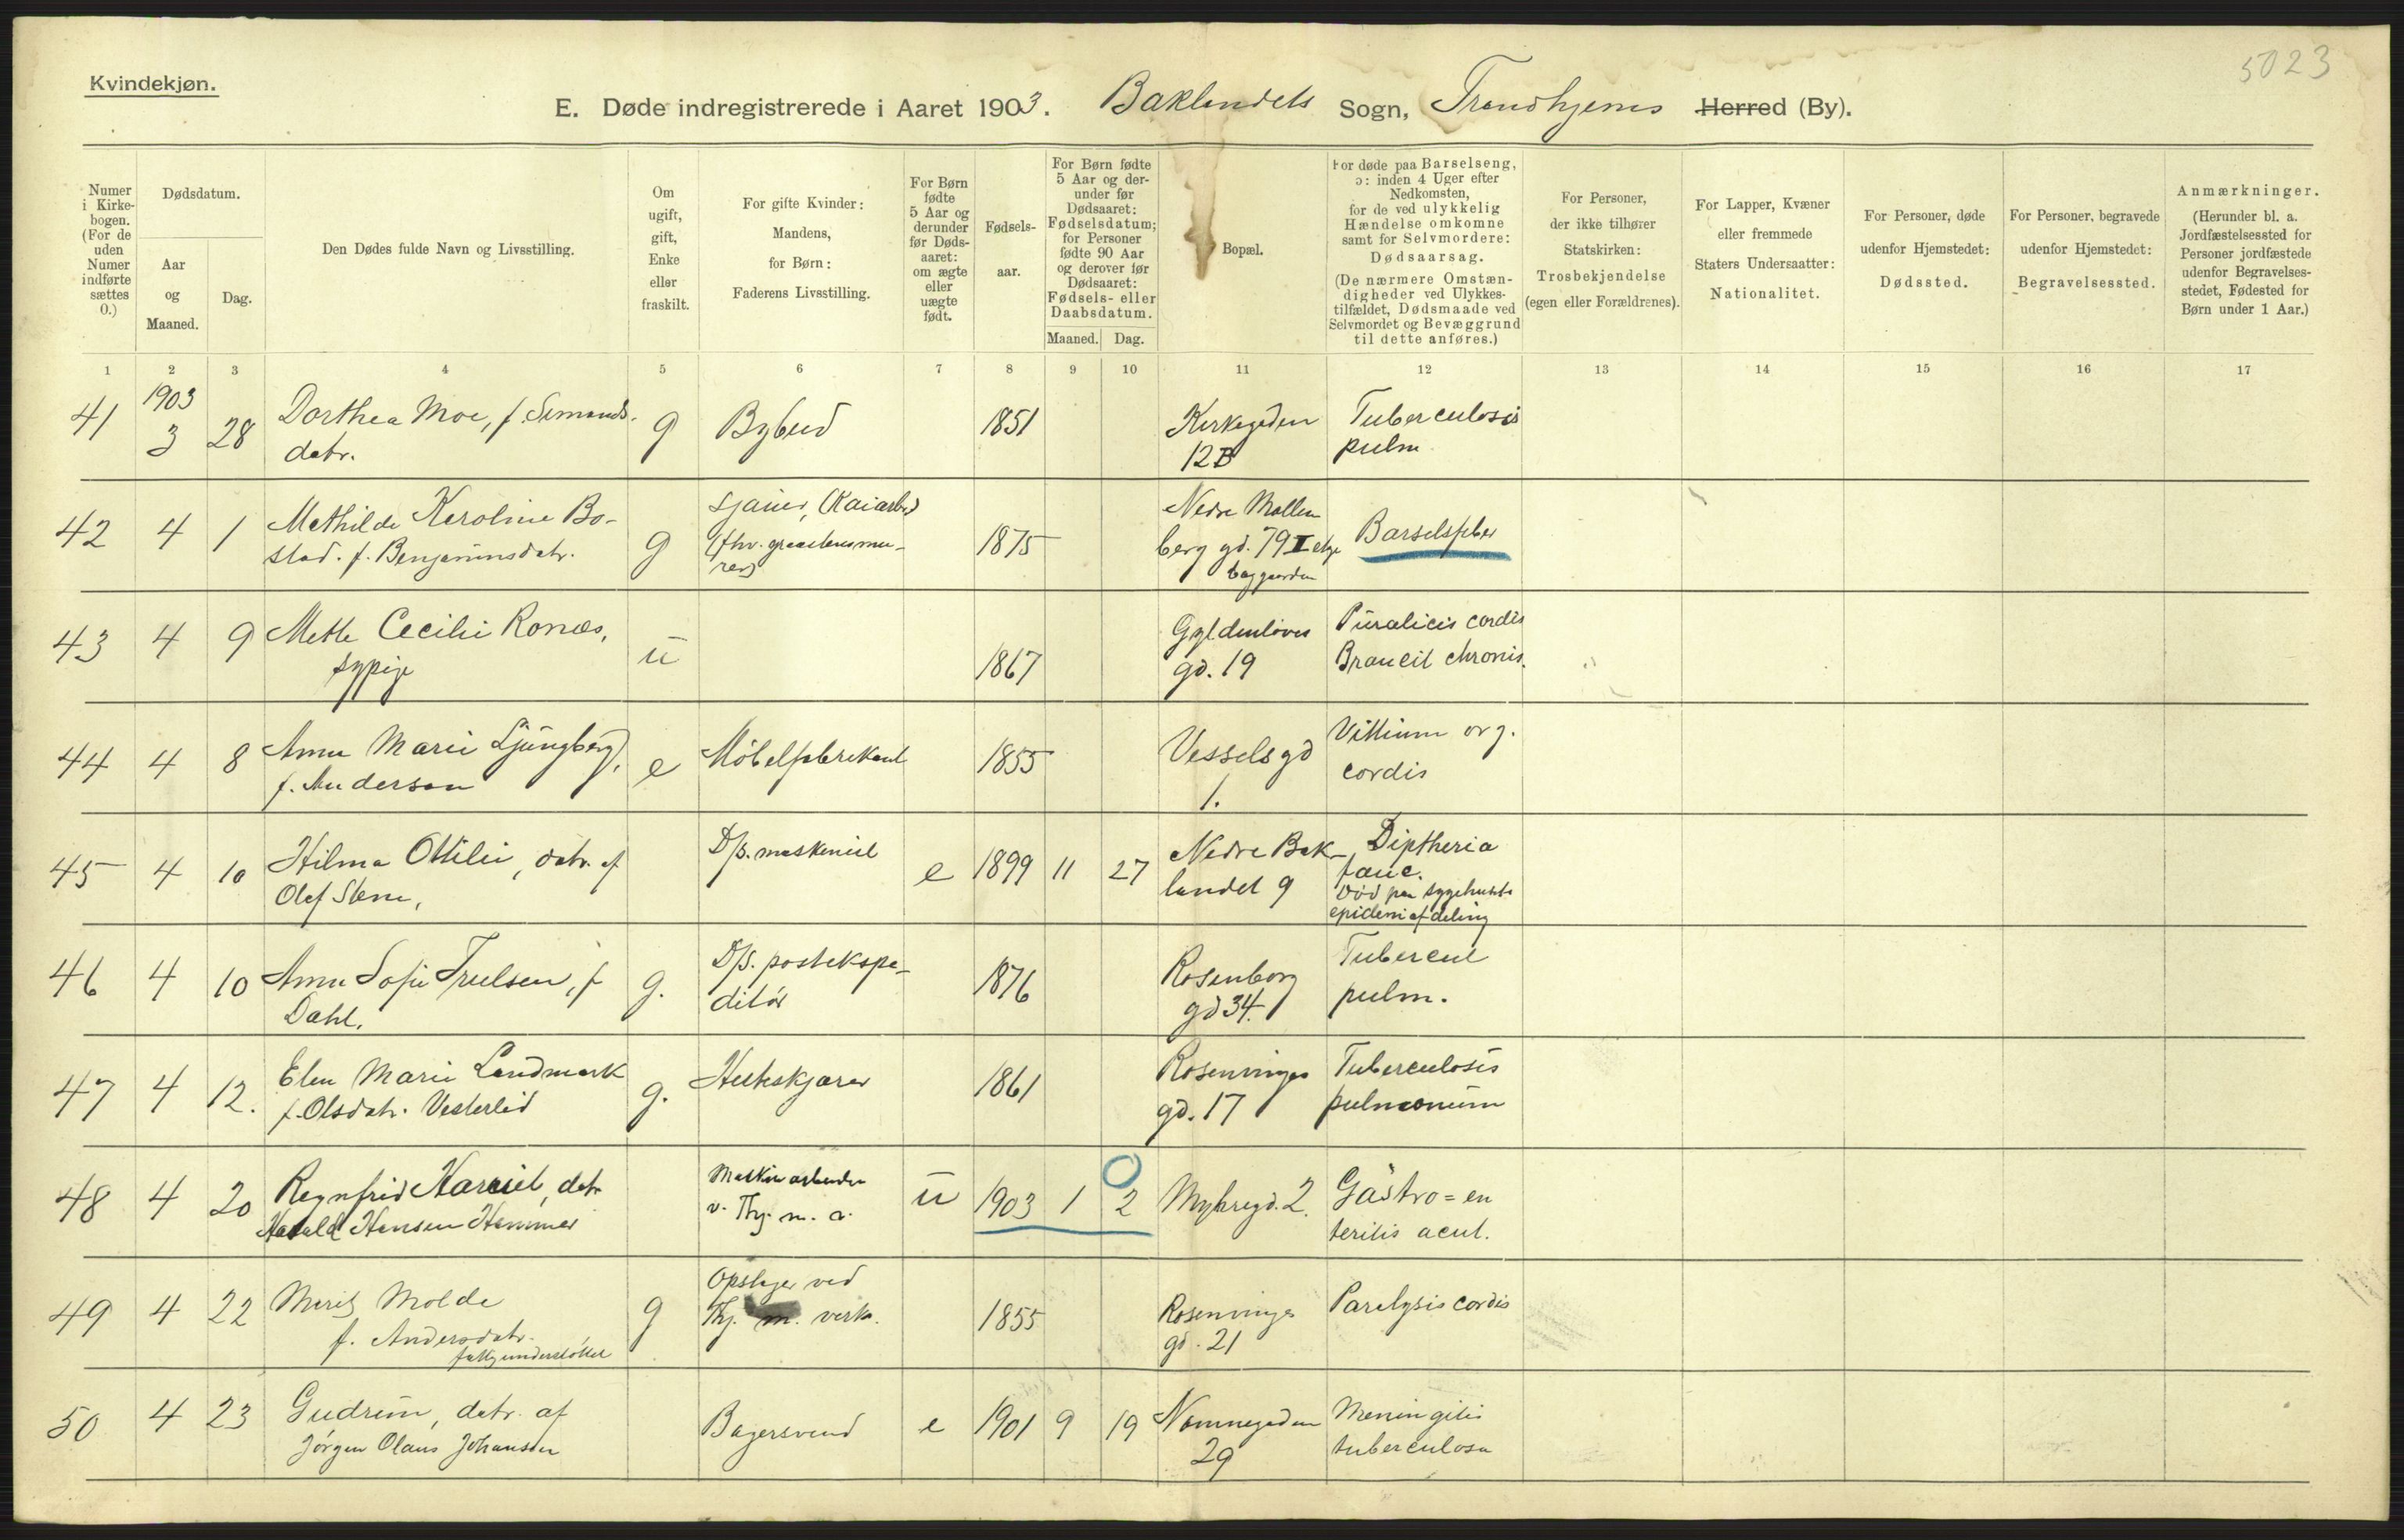 5023
Kvindekjøn.
E. Døde indregistrerede i Aaret 1903. Baklandets Sogn, Trondhjems Herred (By).
Numer i Kirkebogen. (For de uden Numer indførte sættes 0.)
Dødsdatum.
Aar og Maaned.
Dag.
Den Dødes fulde Navn og Livsstilling.
Om ugift, gift, Enke eller fraskilt.
For gifte Kvinder: Mandens, for Børn: Faderens Livsstilling.
For Børn fødte 5 Aar og derunder før Dødsaaret: om ægte eller uægte født.
Fødselsaar.
For Børn fødte 5 Aar og derunder før Dødsaaret: Fødselsdatum; for Personer fødte 90 Aar og derover før Dødsaaret: Fødsels- eller Daabsdatum.
Maaned. Dag.
Bopæl.
For døde paa Barselseng, ɔ: inden 4 Uger efter Nedkomsten, for de ved ulykkelig Hændelse omkomne samt for Selvmordere: Dødsaarsag.
(De nærmere Omstændigheder ved Ulykkestilfældet, Dødsmaade ved Selvmordet og Bevæggrund til dette anføres.)
For Personer, der ikke tilhører Statskirken: Trosbekjendelse (egen eller Forældrenes).
For Lapper, Kvæner eller fremmede Staters Undersaatter: Nationalitet.
For Personer, døde udenfor Hjemstedet: Dødssted.
For Personer, begravede udenfor Hjemstedet: Begravelsessted.
Anmærkninger.
(Herunder bl. a. Jordfæstelsessted for Personer jordfæstede udenfor Begravelsesstedet, Fødested for Børn under 1 Aar.)
1 2 3 4 5 6 7 8 9 10 11 12 13 14 15 16 17
41 1903 3 28 Dorthea Moe, f. Simonds-
datr. g Bybud 1851 Kirkegaden
12B Tuberculosis
pulm
42 4 1 Mathilde Karoline Bo-
stad. f. Benjaminsdatr. g Sjauer, (Kaiarb.)
(fhv. graastensmu-
rer) 1875 Nedre Møllen
berg gd. 79 I etg
baggaarden Barselsfeber
43 4 9 Mette Cecilie Ronæs,
sypige u 1867 Gyldenløves
gd. 19 cordis
chronis.
44 4 8 Anna Marie Ljungberg,
f. Anderson e Møbelfabrikant 1855 Vesselsgd
1. Vittium org.
cordis
45 4 10 Hilma Ottilie, datr. af
Olaf Stene, D/s. maskinist e 1899 11 27 Nedre Bak-
landet 9 Diptheria
fauc.
Død paa sygehusets
epidemiafdeling
46 4 10 Anna Sofie Trulsen, f
Dahl. g. D/s. postekspe-
ditør 1876 Rosenborg
gd 34. Tubercul
pulm.
47 4 12. Elen Marie Landmark
f. Olsdatr. Vesterlid g. 1861 Rosenvinges
gd. 17 Tuberculosis
pulmonum
48 4 20 Ragnfrid Harriet, datr
Harald Hansen Hammer Maskinarbeider
v. Thj. m. v. u 1903 1 2 Myhregd. 2. Gastro=en
teritis acut.
49 4 22 Marit Molde
f. Andersdatr.
fattigunderstøttet g Opslager ved
Thj. m. verk. 1855 Rosenvinges
gd. 21 Paralysis cordis
50 4 23 Gudrun, datr. af
Jørgen Olaus Johansen Bagersvend e 1901 9 19 Nonnegaden
29 Meningitis
tuberculosa